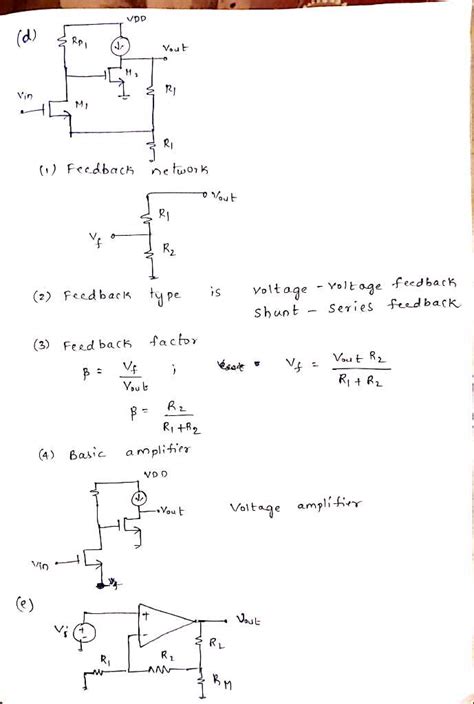 (d)
VDD
RD1
Vout
M2
R1
Vin
M1
R1
(1) Feedback network
Vout
R1
Vf
R2
(2) Feedback type is voltage - voltage feedback
shunt - series feedback
(3) Feedback factor
β = Vf / Vout ; Vf = Vout R2 / R1 + R2
β = R2 / R1 + R2
(4) Basic amplifier
VDD
Vout
Voltage amplifier
Vin
(e)
+
Vout
-
R1
R2
RM